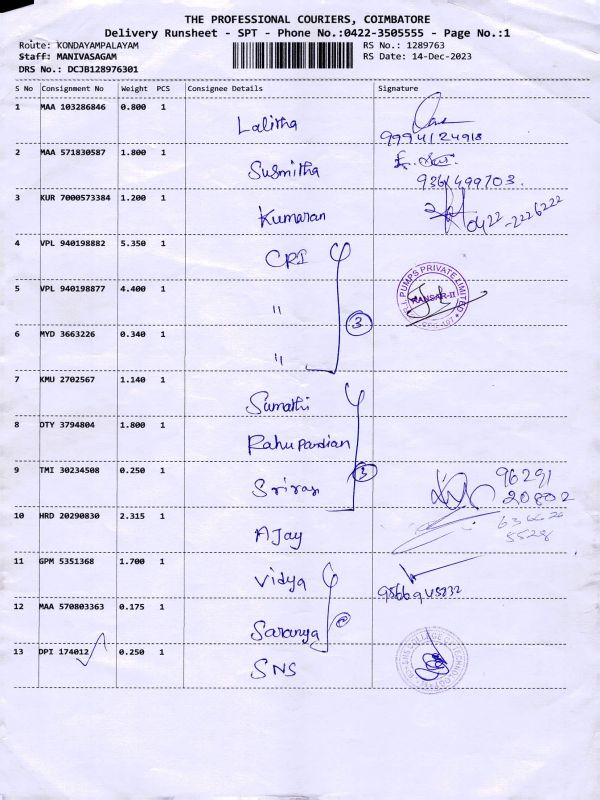 THE PROFESSIONAL COURIERS, COIMBATORE
Delivery Runsheet - SPT - Phone No.:0422-3505555 - Page No.:1
Route: KONDAYAMPALAYAM RS No.: 1289763
Staff: MANIVASAGAM RS Date: 14-Dec-2023
DRS No.: DCJB128976301
S No Consignment No Weight PCS Consignee Details Signature
1 MAA 103286846 0.800 1 Lalitha
9994124918
2 MAA 571830587 1.800 1 Susmitha
9361499703.
3 KUR 7000573384 1.200 1 Kumaran
0422-2226222
4 VPL 940198882 5.350 1 CRI
5 VPL 940198877 4.400 1 "
PUMPS PRIVATE LIMITED
RANSAR-II
3
6 MYD 3663226 0.340 1 "
7 KMU 2702567 1.140 1 Sumathi
8 OTY 3794804 1.800 1 Rahupandian
3
9 TMI 30234508 0.250 1 Sriram
96291
20802
10 HRD 20290830 2.315 1 AJay
5528
11 GPM 5351368 1.700 1 Vidya
12 MAA 570803363 0.175 1 Saranya
13 DPI 174012 0.250 1 SNS
COLLEGE OF TECHNOLOGY